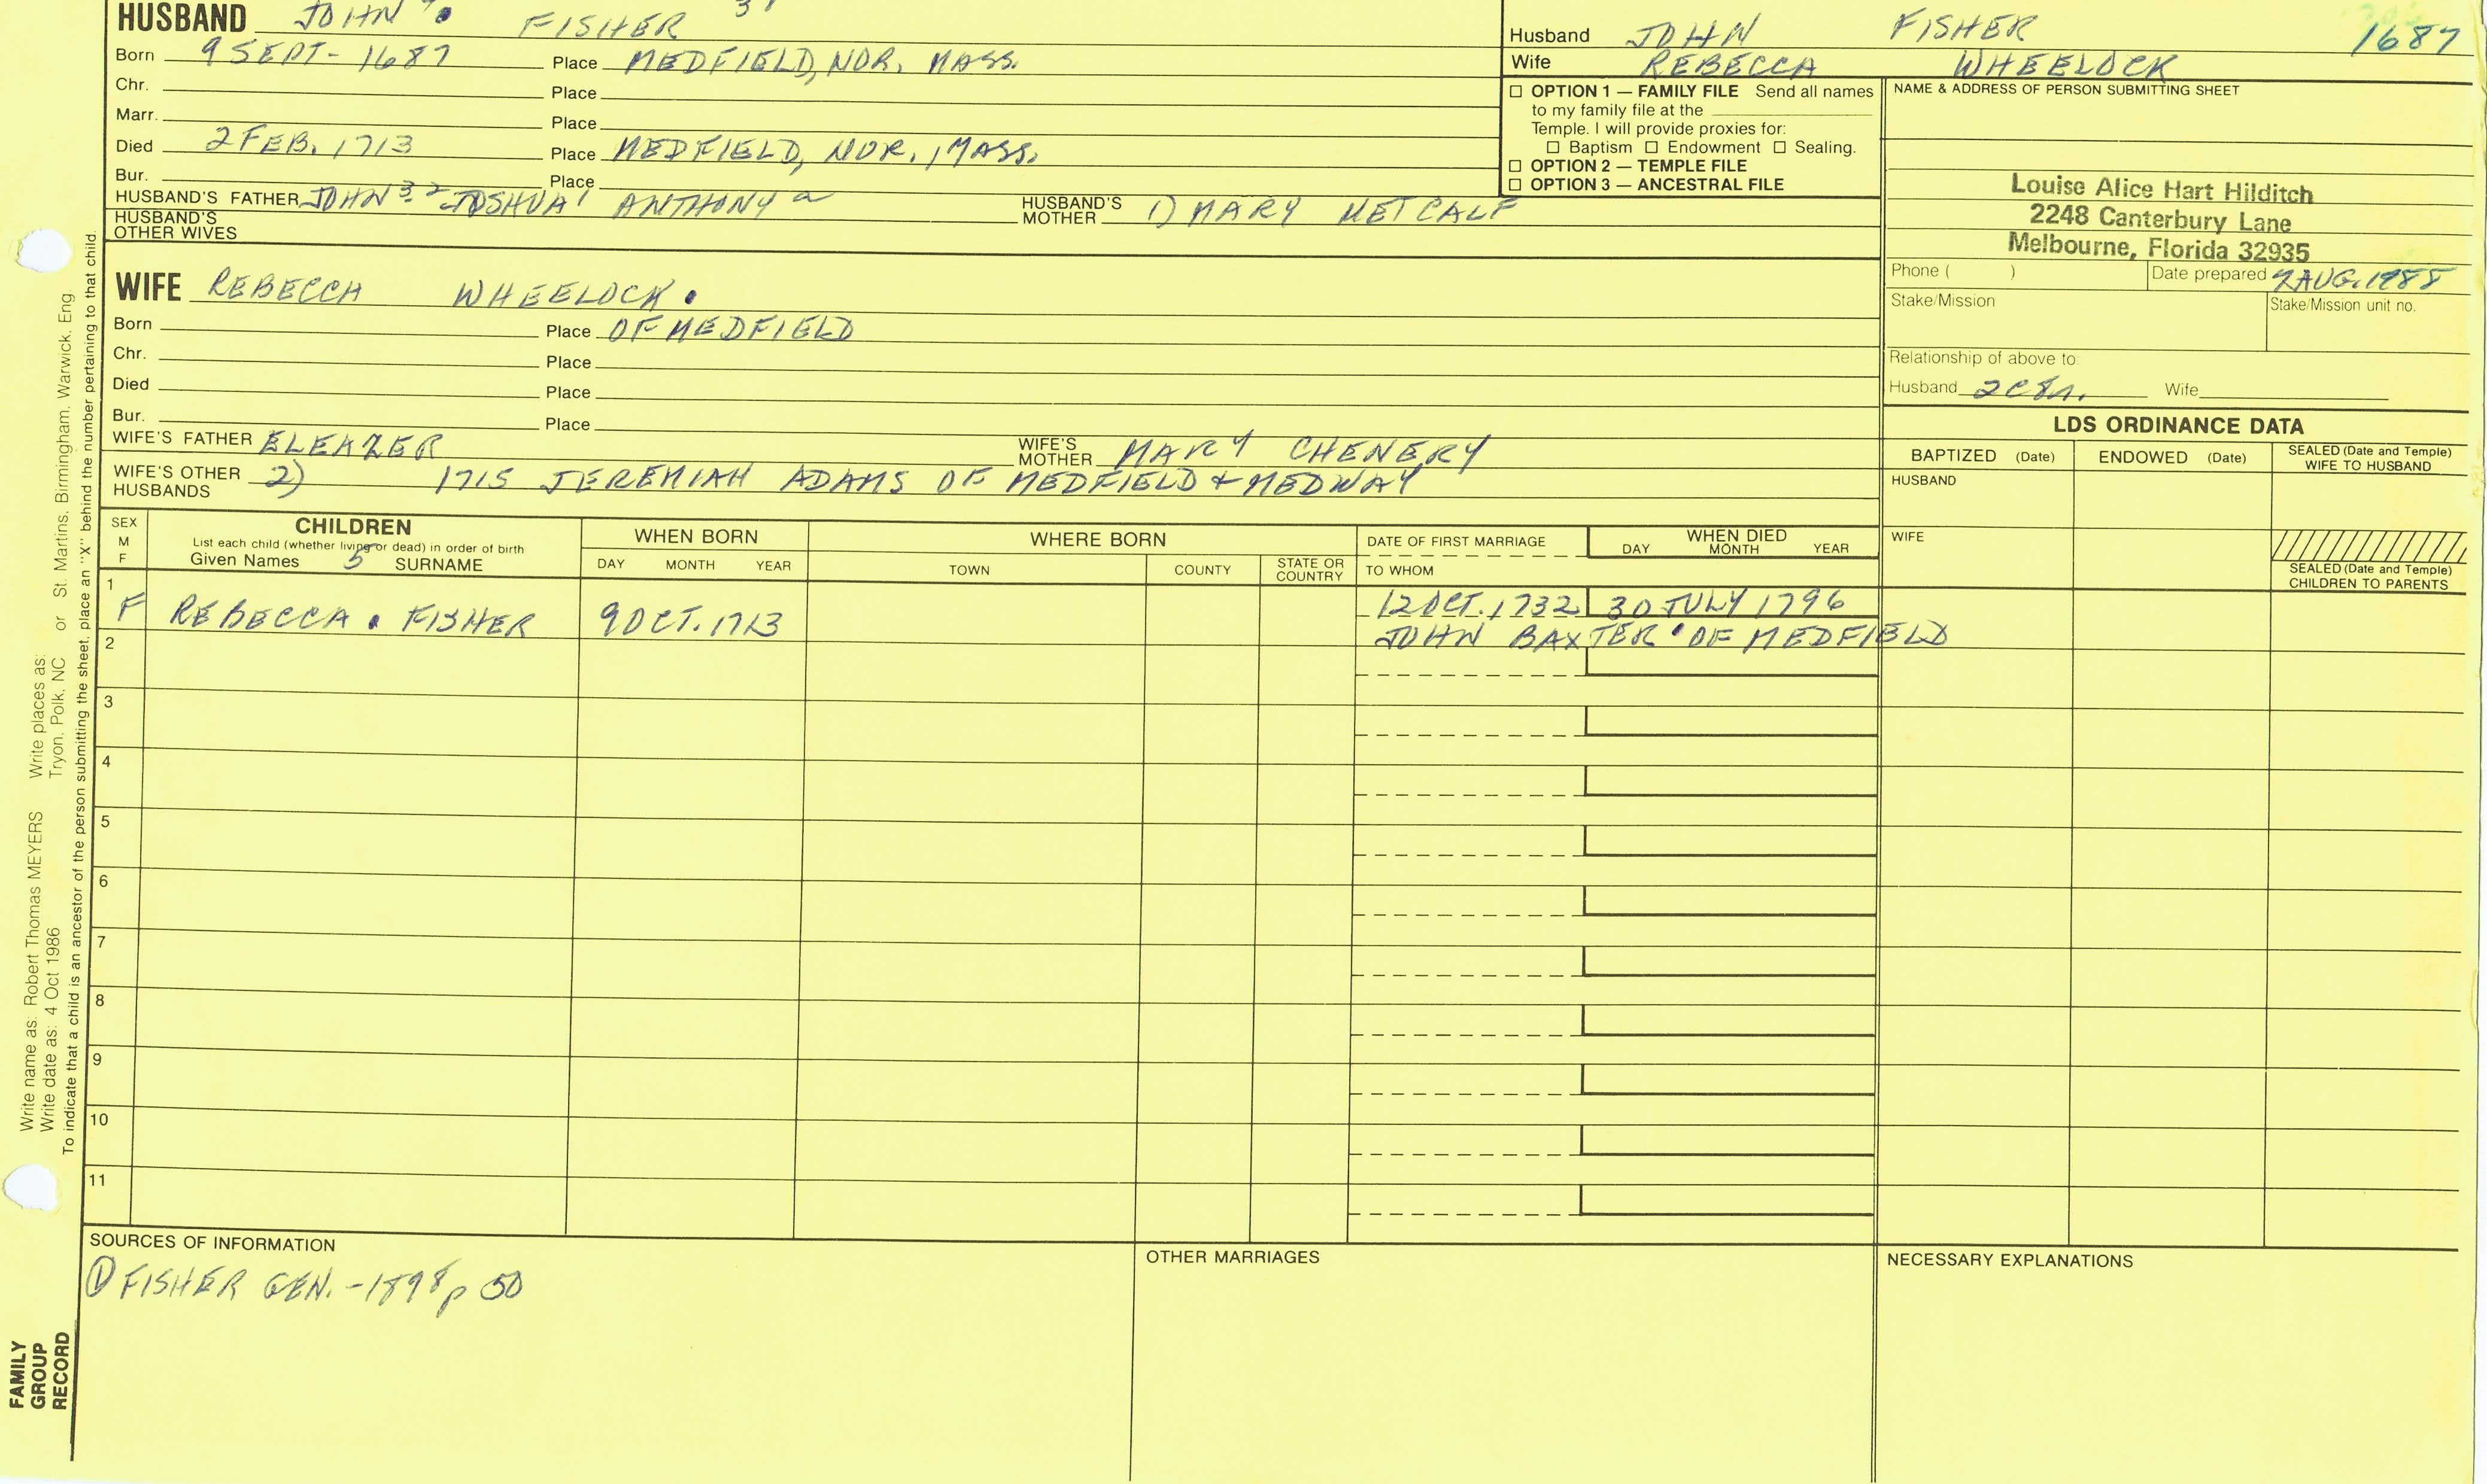 HUSBAND JOHN 4 FISHER 3
Born 9 SEPT - 1687 Place MEDFIELD, NOR. MASS.
Chr. Place
Marr. Place
Died 2 FEB. 1713 Place MEDFIELD, NOR., MASS.
Bur. Place
HUSBAND'S FATHER JOHN 3 2 JOSHUA 1 ANTHONY a HUSBAND'S MOTHER 1) MARY METCALF
HUSBAND'S OTHER WIVES
Husband JOHN FISHER 1687
Wife REBECCA WHEELOCK
☐ OPTION 1 — FAMILY FILE Send all names
to my family file at the
Temple. I will provide proxies for:
☐ Baptism ☐ Endowment ☐ Sealing.
☐ OPTION 2 — TEMPLE FILE
☐ OPTION 3 — ANCESTRAL FILE
NAME & ADDRESS OF PERSON SUBMITTING SHEET
Louise Alice Hart Hilditch
2248 Canterbury Lane
Melbourne, Florida 32935
Phone ( ) Date prepared AUG. 1988
Stake/Mission Stake/Mission unit no.
Relationship of above to:
Husband 2C8r. Wife
WIFE REBECCA WHEELOCK.
Born Place OF MEDFIELD
Chr. Place
Died Place
Bur. Place
WIFE'S FATHER ELEAZER WIFE'S MOTHER MARY CHENERY
WIFE'S OTHER HUSBANDS 2) 1715 JEREMIAH ADAMS OF MEDFIELD + MEDWAY
LDS ORDINANCE DATA
BAPTIZED (Date) ENDOWED (Date) SEALED (Date and Temple) WIFE TO HUSBAND
HUSBAND
WIFE
SEALED (Date and Temple) CHILDREN TO PARENTS
SEX M F
CHILDREN
List each child (whether living or dead) in order of birth
Given Names 5 SURNAME
WHEN BORN
DAY MONTH YEAR
WHERE BORN
TOWN COUNTY STATE OR COUNTRY
DATE OF FIRST MARRIAGE
TO WHOM
WHEN DIED
DAY MONTH YEAR
1 F REBECCA . FISHER 9 OCT. 1713 12 OCT. 1732 30 JULY 1796
JOHN BAXTER OF MEDFIELD
2
3
4
5
6
7
8
9
10
11
SOURCES OF INFORMATION
① FISHER GEN. - 1898 p 50
OTHER MARRIAGES
NECESSARY EXPLANATIONS
Write name as: Robert Thomas MEYERS Write places as: St. Martins, Birmingham, Warwick, Eng
Write date as: 4 Oct 1986 Tryon, Polk, NC or
To indicate that a child is an ancestor of the person submitting the sheet, place an "X" behind the number pertaining to that child.
FAMILY
GROUP
RECORD